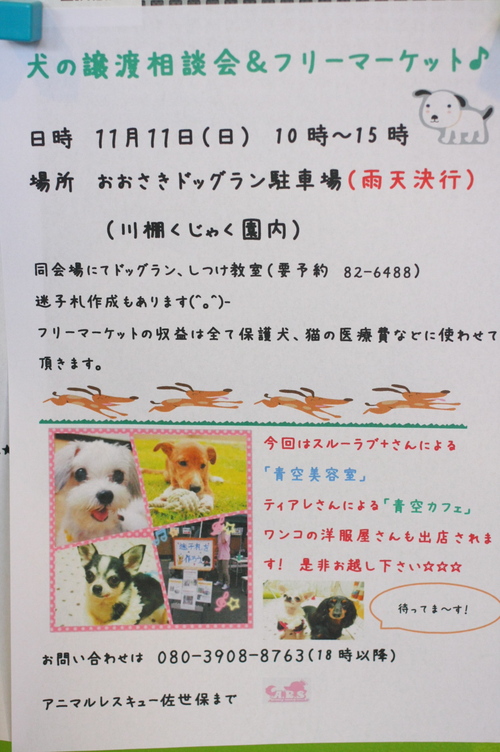 犬の譲渡相談会&フリーマーケット♪
日時 11月11日(日) 10時～15時
場所 おおさきドッグラン駐車場(雨天決行)
(川棚くじゃく園内)
同会場にてドッグラン、しつけ教室(要予約 82-6488)
迷子札作成もあります(^｡^)-
フリーマーケットの収益は全て保護犬、猫の医療費などに使わせて
頂きます。
今回はスルーラブ+さんによる
「青空美容室」
ティアレさんによる「青空カフェ」
ワンコの洋服屋さんも出店されま
す! 是非お越し下さい☆☆☆
迷子札を
作ろう
待ってま～す!
お問い合わせは 080-3908-8763(18時以降)
アニマルレスキュー佐世保まで
A.R.S